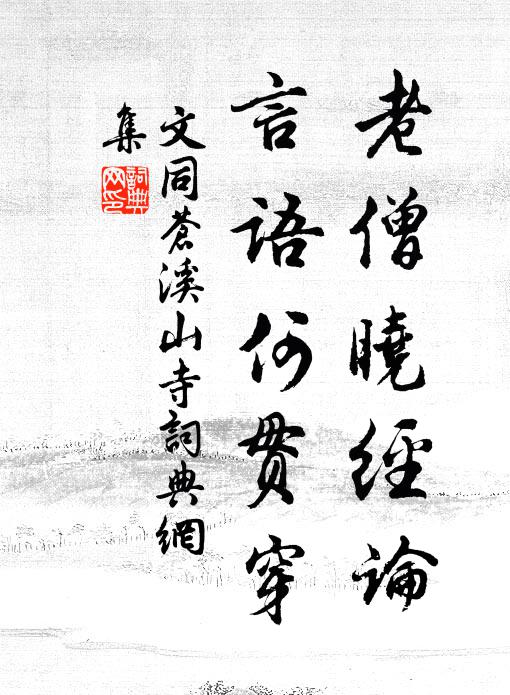 老僧曉經論
言語何貫穿
文同蒼溪山寺詞典網
集
詞典
网印